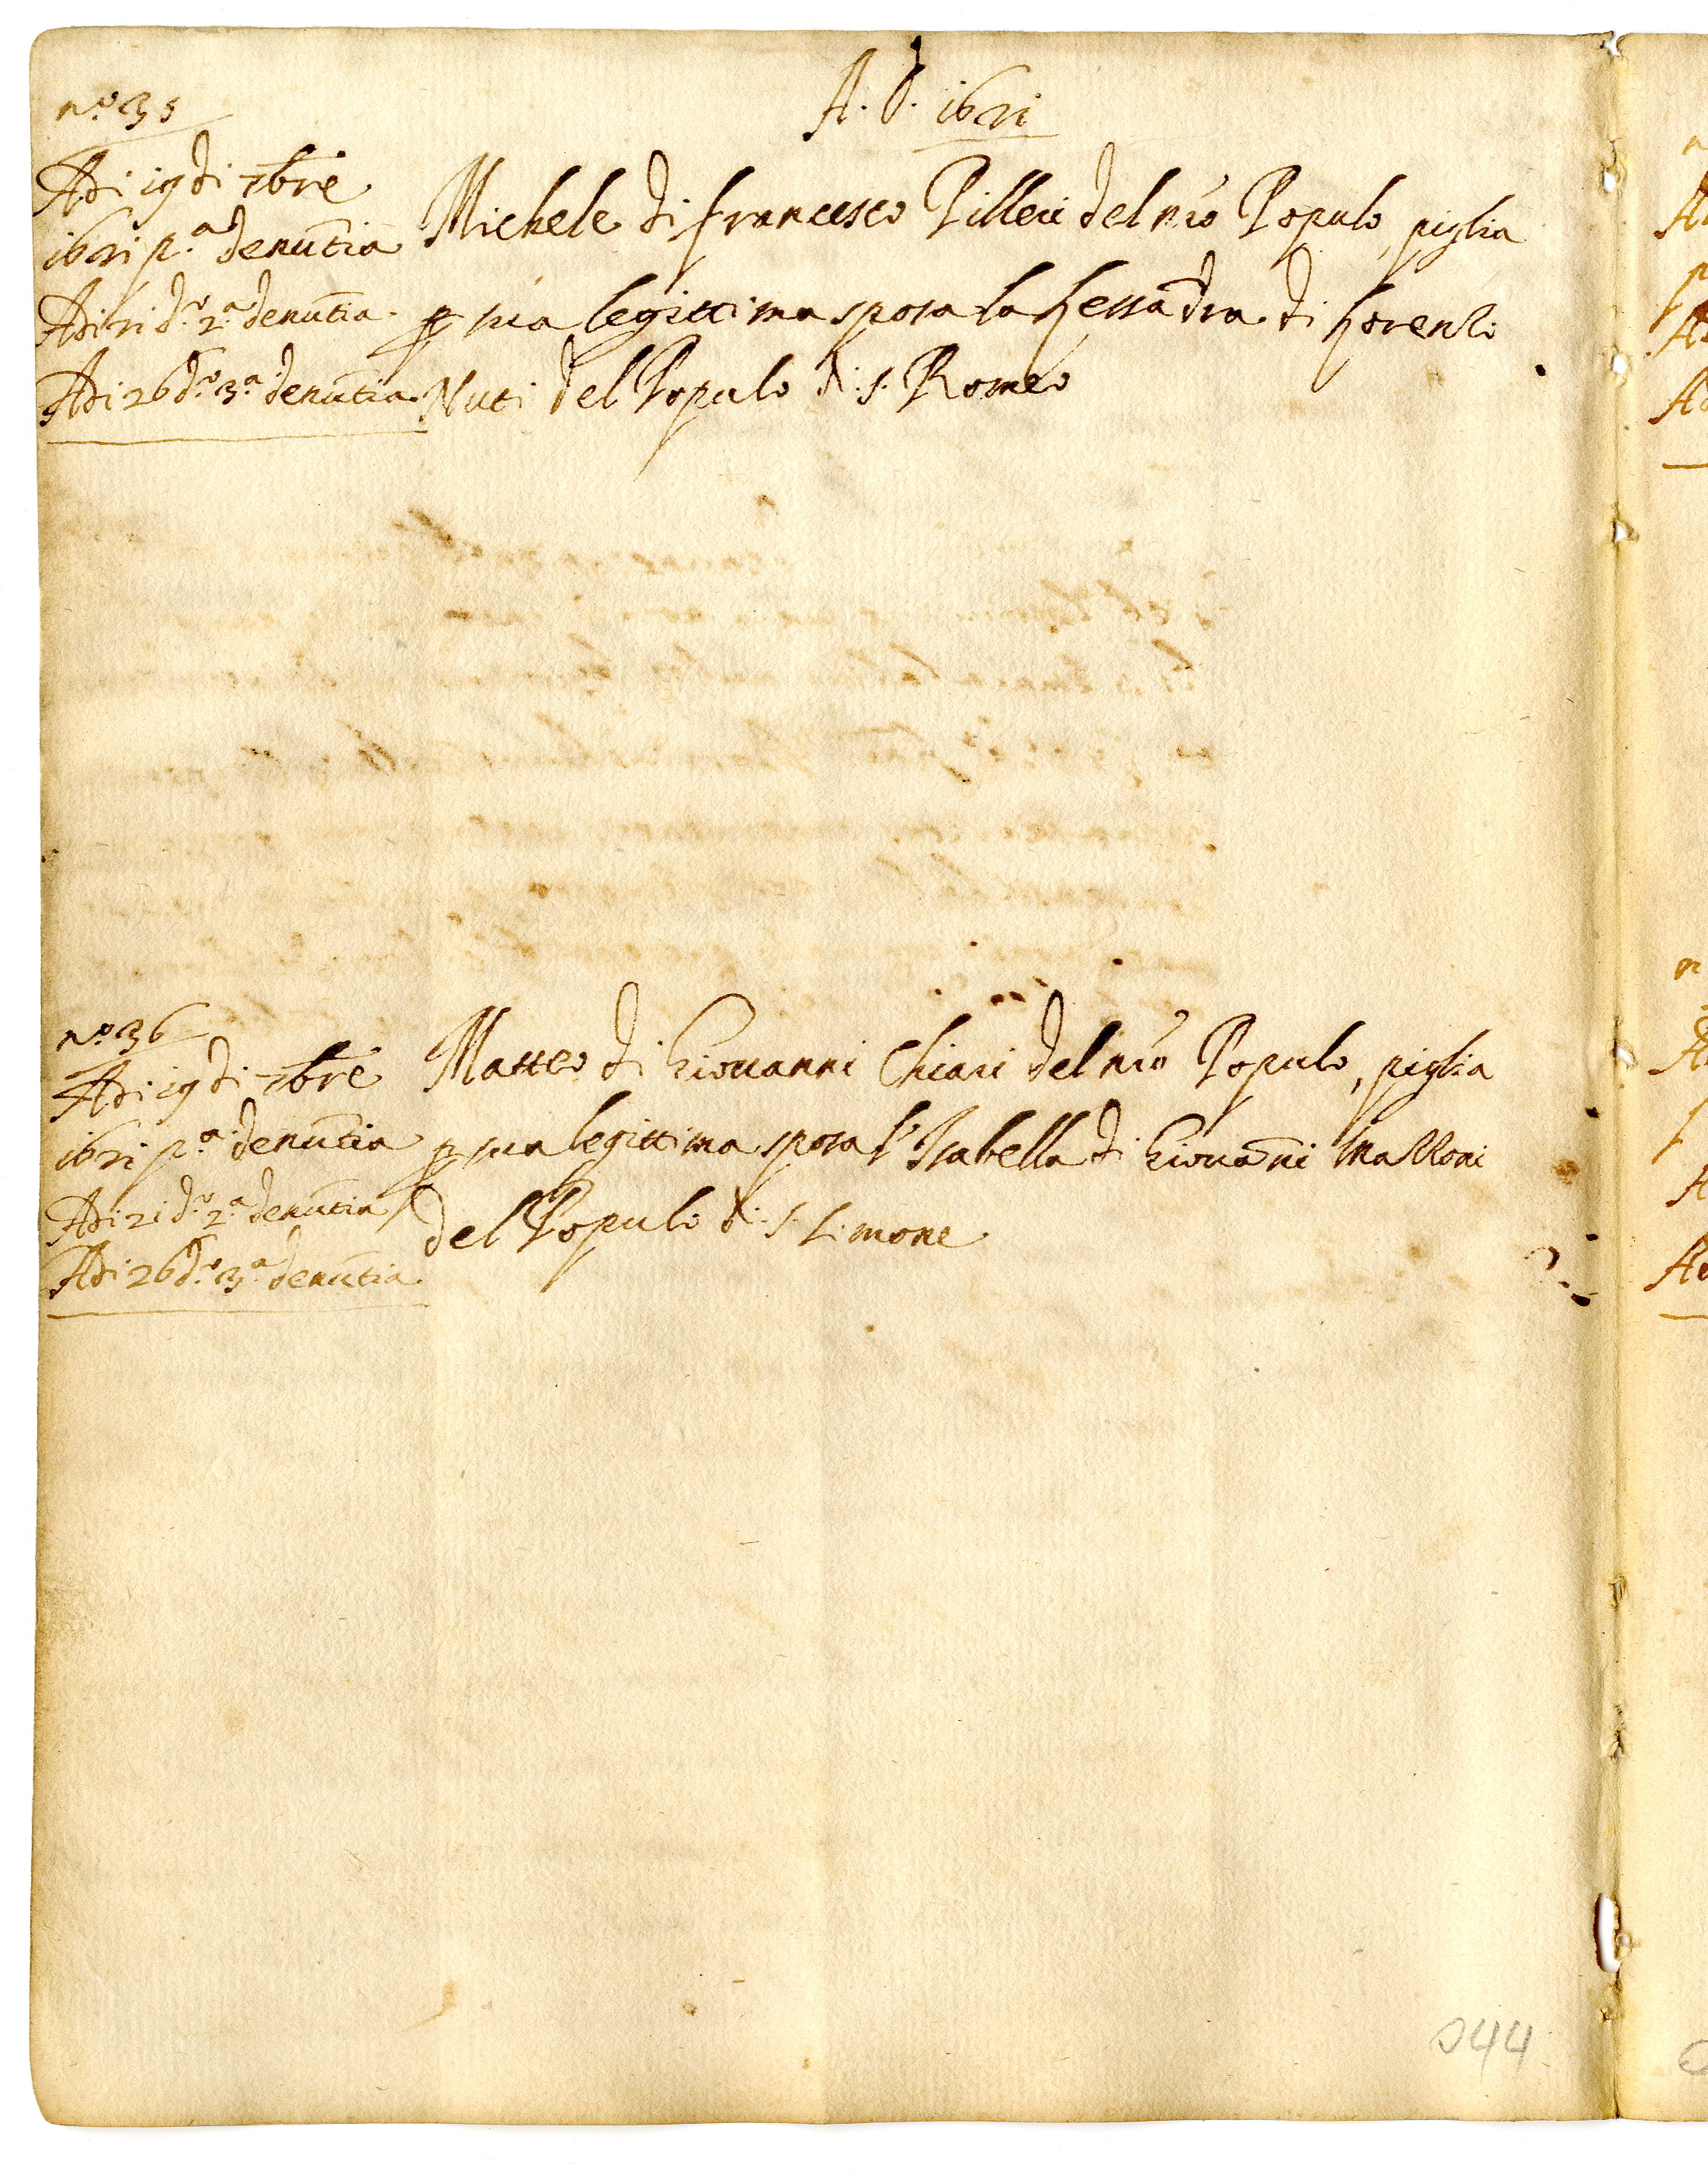 A. D. 1621
n.º 35
Adi 19 di 7bre
1621 p.ª denũtia
Adi 21 d.º 2.ª denũtia.
Adi 26 d.º 3.ª denũtia.
Michele di francesco Pilleri del nrõ Populo, piglia
p sua legittima sposa la Lessãdra di Lorenzo
Nuti del Populo di s. Romeo
n.º 36
Adi 19 di 7bre
1621 p.ª denũtia
Adi 21 d.º 2.ª denũtia
Adi 26 d.º 3.ª denũtia.
Matteo di Giouanni Chiari del nrõ Populo, piglia
p sua legittima sposa l'Isabella di Giouãni
del Populo di s. Simone
044